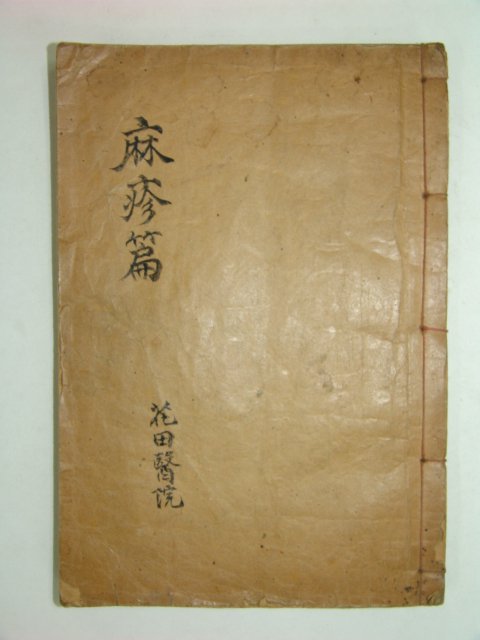 麻疹篇
花田醫院